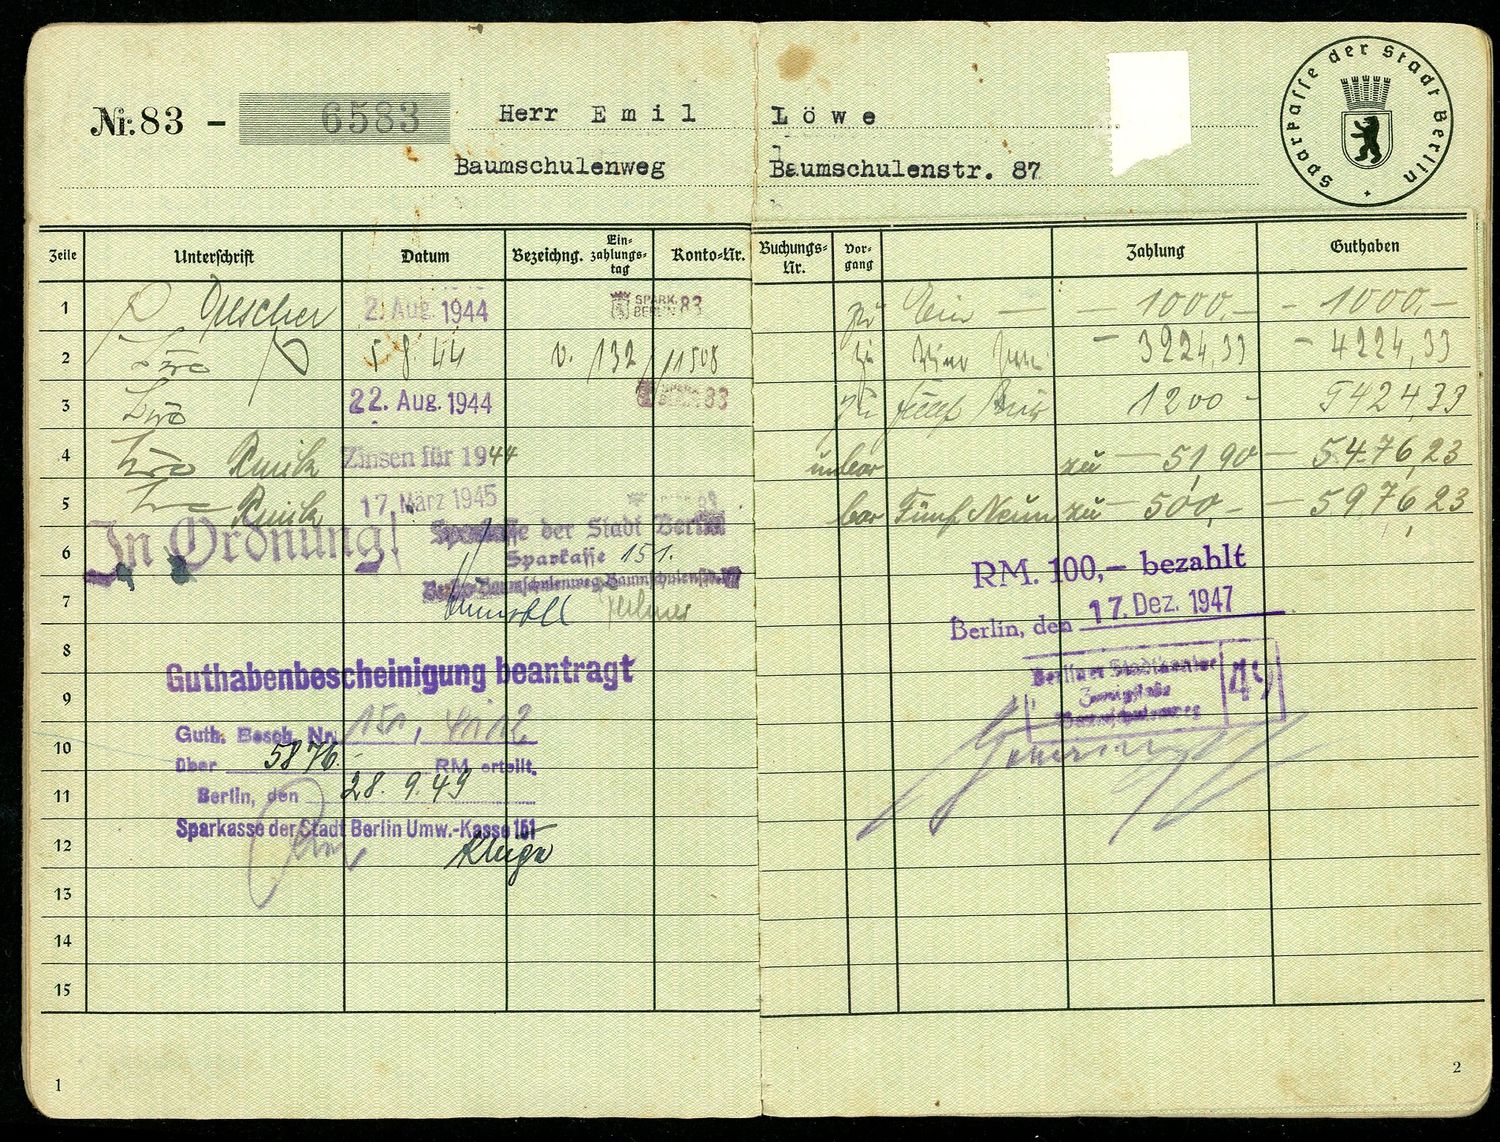 Nr. 83 – 6583 Herr Emil Löwe
Baumschulenweg Baumschulenstr. 87
Sparkasse der Stadt Berlin
Zeile Unterschrift Datum Bezeichng. Einzahlungstag Konto-Nr. Buchungs-Nr. Vorgang Zahlung Guthaben
1 2. Aug. 1944 SPARK. BERLIN 83 zu Ein — 1000,- - 1000.-
2 5 8. 44 v. 132 11508 zu — 3224,33 - 4224,33
3 22. Aug. 1944 SPARK. BERLIN 83 zu 1200 - 5424,33
4 Zinsen für 1944 unbar zu — 51,90 — 5476,23
5 17. März 1945 bar Fünf Neun zu — 500,- — 5976,23
6 In Ordnung! Sparkasse der Stadt Berlin
Sparkasse 151.
Berlin-Baumschulenweg, Baumschulenstr.
7
8
9
10
11
12
13
14
15
Guthabenbescheinigung beantragt
Guth. Besch. Nr. 151,
über 5876.- RM erteilt.
Berlin, den 28. 9. 49
Sparkasse der Stadt Berlin Umw.-Kasse 151
Kluge
RM. 100,– bezahlt
Berlin, den 17. Dez. 1947
Berliner Stadtkontor 49
Zweigstelle
Baumschulenweg
1
2